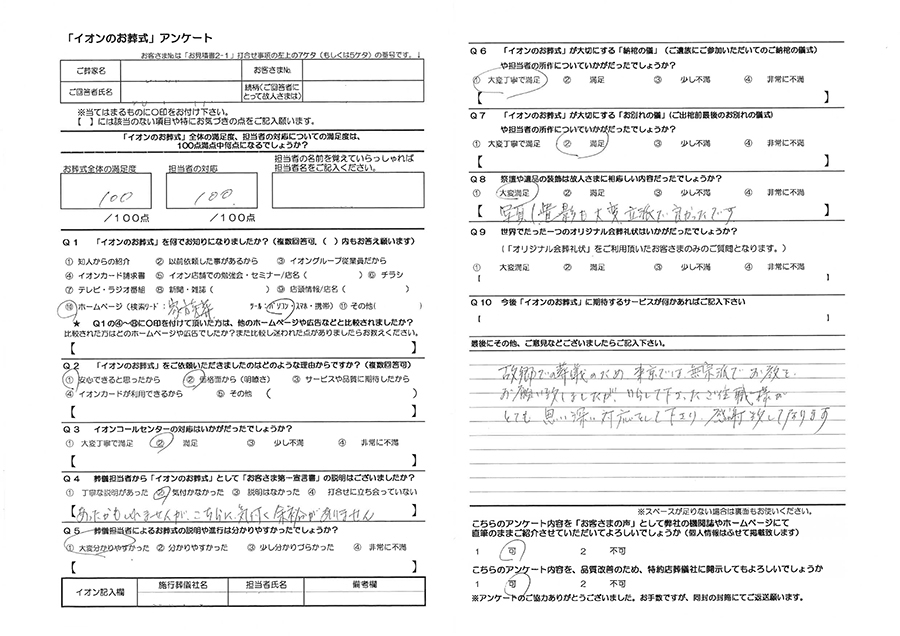 「イオンのお葬式」アンケート
お客さま№は「お見積書2-1」打合せ事項の左上の7ケタ（もしくは5ケタ）の番号です。↓
ご葬家名
お客さま№
ご回答者氏名
続柄（ご回答者にとって故人さまは）
※当てはまるものに○印をお付け下さい。
【　】には該当のない項目や特にお気づきの点をご記入願います。
「イオンのお葬式」全体の満足度、担当者の対応についての満足度は、
100点満点中何点になるでしょうか？
お葬式全体の満足度
担当者の対応
担当者の名前を覚えていらっしゃれば
担当者名をご記入ください。
100
100
/100点
/100点
Q1 「イオンのお葬式」を何でお知りになりましたか？（複数回答可、（　）内もお答え願います）
① 知人からの紹介 ② 以前依頼した事があるから ③ イオングループ従業員だから
④ イオンカード請求書 ⑤ イオン店舗での勉強会・セミナー/店名（　） ⑥ チラシ
⑦ テレビ・ラジオ番組 ⑧ 新聞・雑誌（　） ⑨ 店頭情報/店名（　）
⑩ ホームページ（検索ワード：家族葬 ツール：パソコン・スマホ・携帯） ⑪ その他（　）
★ Q1の④～⑧に○印を付けて頂いた方は、他のホームページや広告などと比較されましたか？
比較された方はどのホームページや広告でしたか？また比較し迷われた点がありましたらお教えください。
【　】
Q2 「イオンのお葬式」をご依頼いただきましたのはどのような理由からですか？（複数回答可）
① 安心できると思ったから ② 価格面から（明瞭さ） ③ サービスや品質に期待したから
④ イオンカードが利用できるから ⑤ その他（　）
【　】
Q3 イオンコールセンターの対応はいかがだったでしょうか？
① 大変丁寧で満足 ② 満足 ③ 少し不満 ④ 非常に不満
【　】
Q4 葬儀担当者から「イオンのお葬式」として「お客さま第一宣言書」の説明はございましたか？
① 丁寧な説明があった ② 気付かなかった ③ 説明はなかった ④ 打合せに立ち会っていない
【あったかもしれませんが、こちらに気付く余裕がありません
Q5 葬儀担当者によるお葬式の説明や進行は分かりやすかったでしょうか？
① 大変分かりやすかった ② 分かりやすかった ③ 少し分かりづらかった ④ 非常に不満
【　】
イオン記入欄
施行葬儀社名
担当者氏名
備考欄
Q6 「イオンのお葬式」が大切にする「納棺の儀」（ご遺族にご参加いただいてのご納棺の儀式）
や担当者の所作についていかがだったでしょうか？
① 大変丁寧で満足 ② 満足 ③ 少し不満 ④ 非常に不満
【　】
Q7 「イオンのお葬式」が大切にする「お別れの儀」（ご出棺前最後のお別れの儀式）
や担当者の所作についていかがだったでしょうか？
① 大変丁寧で満足 ② 満足 ③ 少し不満 ④ 非常に不満
【　】
Q8 祭壇や遺品の装飾は故人さまに相応しい内容だったでしょうか？
① 大変満足 ② 満足 ③ 少し不満 ④ 非常に不満
【写真(背景)も大変立派で良かったです】
Q9 世界でたった一つのオリジナル会葬礼状はいかがだったでしょうか？
（「オリジナル会葬礼状」をご利用頂いたお客さまのみのご質問となります。）
① 大変満足 ② 満足 ③ 少し不満 ④ 非常に不満
【　】
Q10 今後「イオンのお葬式」に期待するサービスが何かあればご記入下さい
【　】
最後にその他、ご意見などございましたらご記入下さい。
故郷での葬儀のため 東京では無宗派で お教を
お願い致しましたが、いらして下さったご住職様が
とても思い深い対応をして下さり、感謝致しております
※スペースが足りない場合は裏面もお使いください。
こちらのアンケート内容を「お客さまの声」として弊社の機関誌やホームページにて
直筆のままご紹介させていただいてよろしいでしょうか（個人情報はふせて掲載致します）
1 可 2 不可
こちらのアンケート内容を、品質改善のため、特約店葬儀社に開示してもよろしいでしょうか
1 可 2 不可
※アンケートのご協力ありがとうございました。お手数ですが、同封の封筒にてご返送願います。